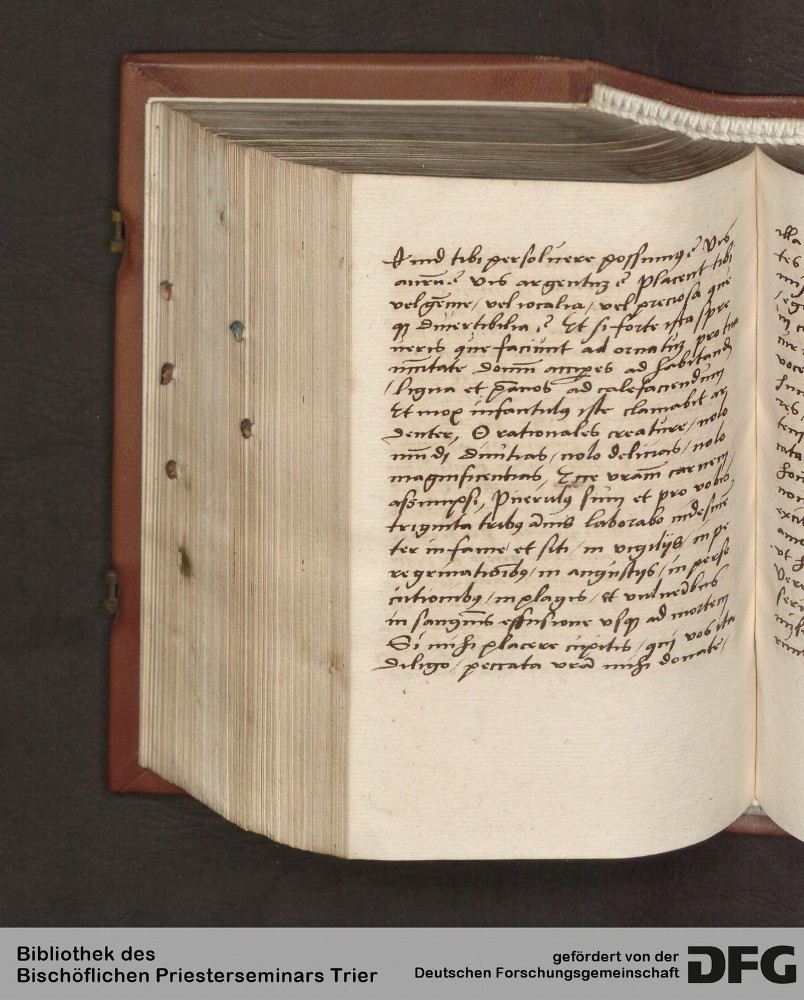 Quid tibi persoluere possumꝯ? Vis
aurū? Vis argentū? Placent tibi
vel gēme, vel iocalia, vel preciosa que
qꝫ diuertibilia? Et si forte ista spre
ueris que faciunt ad ornatū, pro tua
ad habitandū
ligna et pānos ad calefaciendum
Et mox infantulꝯ iste clamabit ar
denter, O rationales creature, nolo
mūdi diuitias, nolo delicias, nolo
magnificentias, Ecce vrām carnem
assumpsi, Puerulꝯ sum et pro vobis
triginta tribꝯ ānis laborabo indesinē
ter in fame et siti, in vigilijs, in pe
regrinationibꝯ, in angustijs, in perse
cutionibꝯ, in plagis, et vulneribus
in sanguinis effusione vsqꝫ ad mortem
Si mihi placere cupitis, qui vos ita
diligo, peccata vrā mihi donate,
illa
tes
voce
Bibliothek des
Bischöflichen Priesterseminars Trier
gefördert von der
Deutschen Forschungsgemeinschaft
DFG